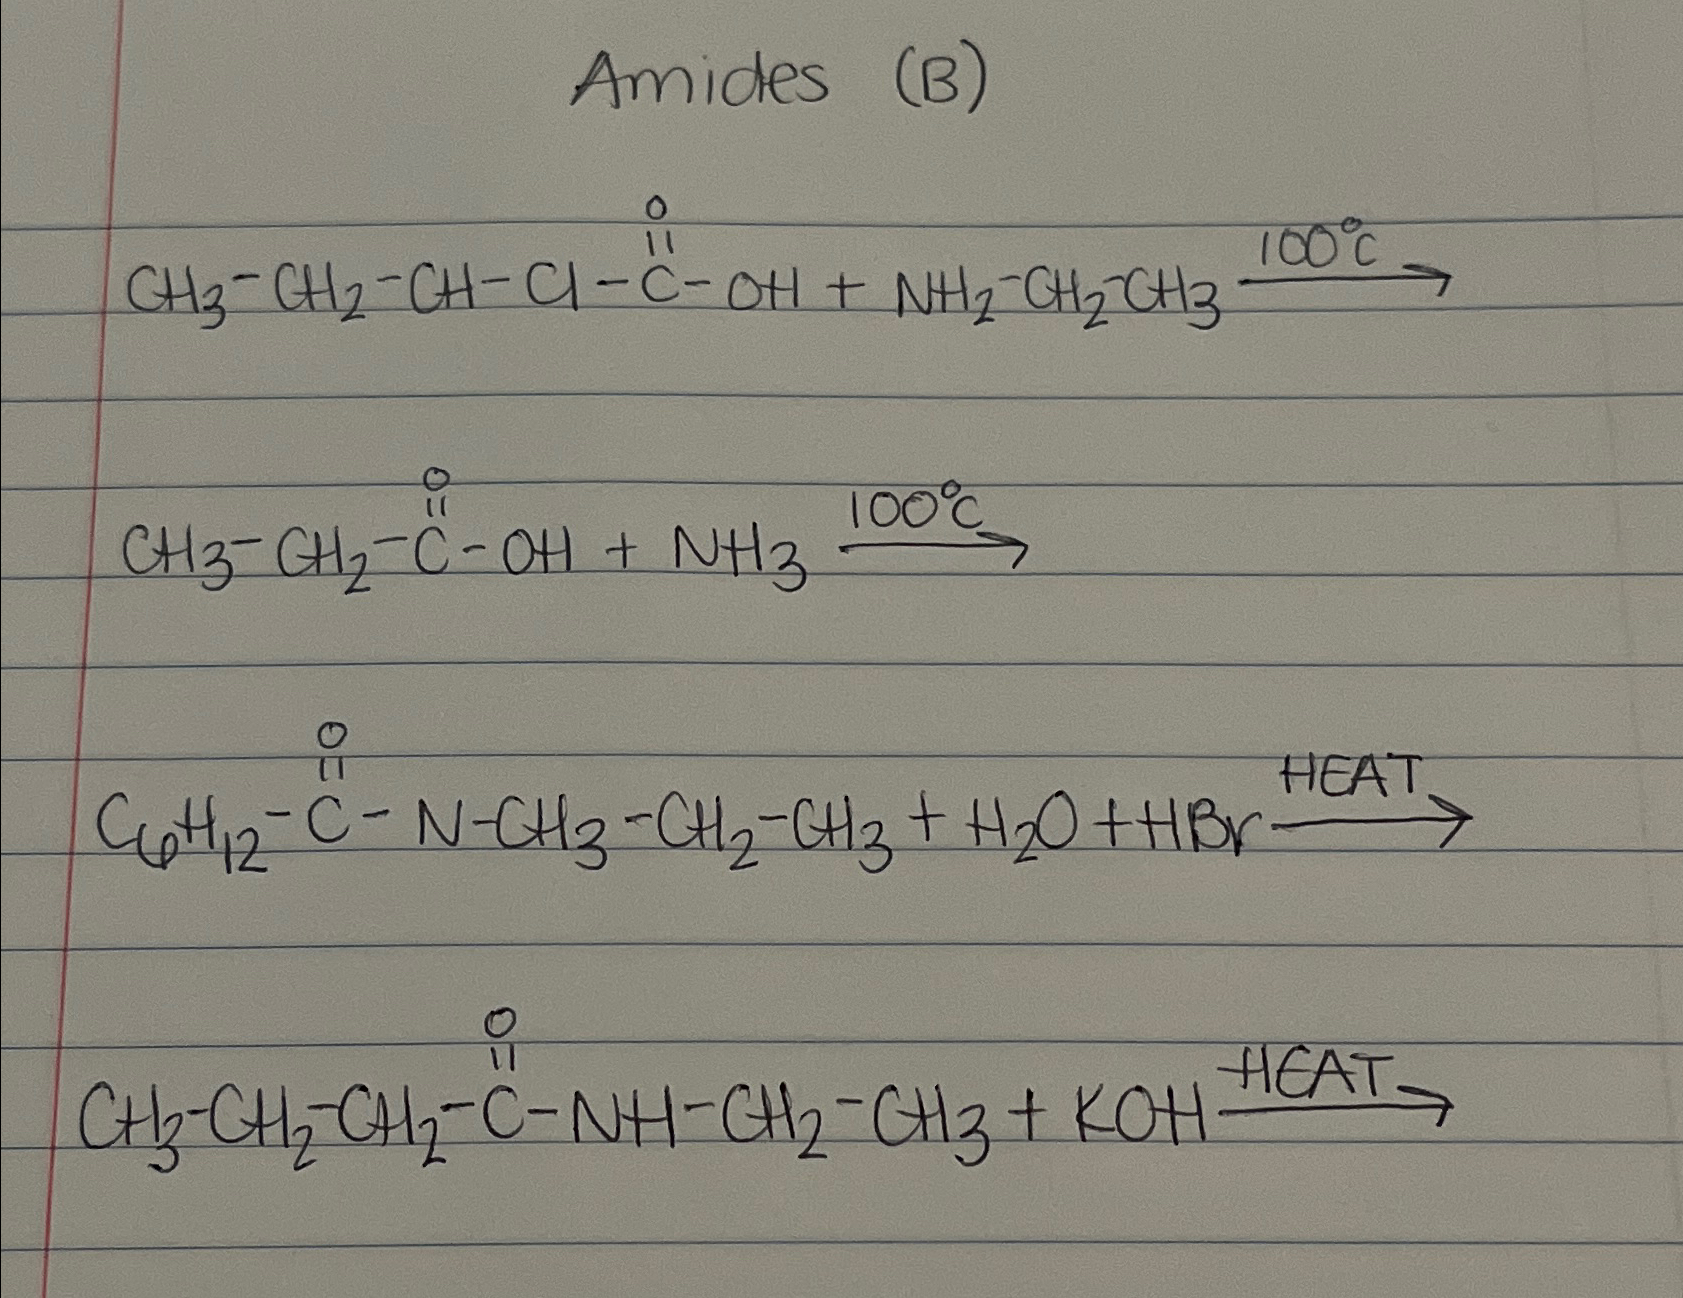 Amides (B)
O
||
CH3-CH2-CH-Cl-C-OH + NH2-CH2-CH3 100°C →
O
||
CH3-CH2-C-OH + NH3 100°C →
O
||
C6H12-C-N-CH3-CH2-CH3 + H2O + HBr HEAT →
O
||
CH3-CH2-CH2-C-NH-CH2-CH3 + KOH HEAT →